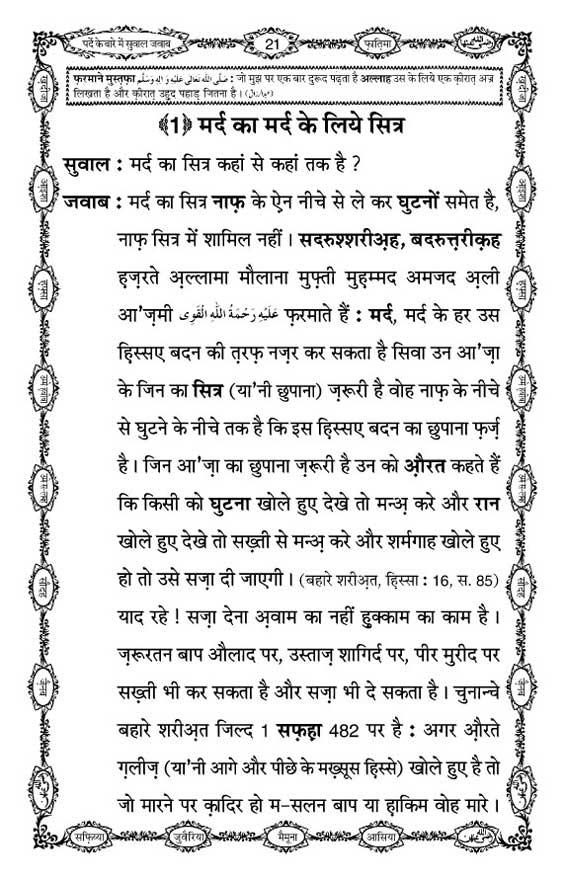 पर्दे के बारे में सुवाल जवाब
21
फ़ातिमा
फ़रमाने मुस्तफ़ा صَلَّى اللهُ تَعَالٰى عَلَيْهِ وَاٰلِهٖ وَسَلَّم : जो मुझ पर एक बार दुरूद पढ़ता है अल्लाह उस के लिये एक क़ीरात अज्र
लिखता है और क़ीरात उहुद पहाड़ जितना है ।
﴾1﴿ मर्द का मर्द के लिये सित्र
सुवाल : मर्द का सित्र कहां से कहां तक है ?
जवाब : मर्द का सित्र नाफ़ के ऐन नीचे से ले कर घुटनों समेत है,
नाफ़ सित्र में शामिल नहीं । सदरुश्शरीअ़ह, बदरुत्तरीक़ह
हज़रते अल्लामा मौलाना मुफ़्ती मुहम्मद अमजद अ़ली
आ'ज़मी عَلَيْهِ رَحْمَةُ اللهِ الْقَوِى फ़रमाते हैं : मर्द, मर्द के हर उस
हिस्सए बदन की त़रफ़ नज़र कर सकता है सिवा उन आ'ज़ा
के जिन का सित्र (या'नी छुपाना) ज़रूरी है वोह नाफ़ के नीचे
से घुटने के नीचे तक है कि इस हिस्सए बदन का छुपाना फ़र्ज़
है । जिन आ'ज़ा का छुपाना ज़रूरी है उन को औ़रत कहते हैं
कि किसी को घुटना खोले हुए देखे तो मन्अ़ करे और रान
खोले हुए देखे तो सख़्ती से मन्अ़ करे और शर्मगाह खोले हुए
हो तो उसे सज़ा दी जाएगी । (बहारे शरीअ़त, हिस्सा : 16, स. 85)
याद रहे ! सज़ा देना अ़वाम का नहीं हुक्काम का काम है ।
ज़रूरतन बाप औलाद पर, उस्ताज़ शागिर्द पर, पीर मुरीद पर
सख़्ती भी कर सकता है और सज़ा भी दे सकता है । चुनान्चे
बहारे शरीअ़त जिल्द 1 सफ़ह़ा 482 पर है : अगर औ़रते
ग़लीज़ (या'नी आगे और पीछे के मख़्सूस हिस्से) खोले हुए है तो
जो मारने पर क़ादिर हो म-सलन बाप या ह़ाकिम वोह मारे ।
सफ़िय्या
जुवैरिया
मैमूना
आसिया